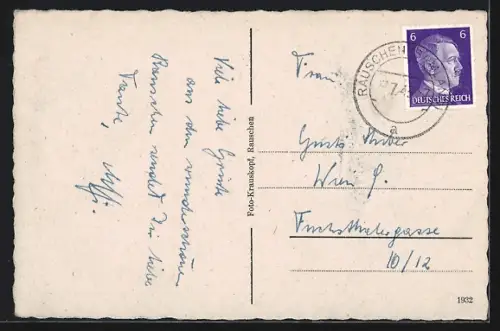 Viele liebe Grüsse
aus dem wunderschönen
Rauschen sendet Dir liebe
Tante,
Foto-Krauskopf, Rauschen
RAUSCHEN
a
6 6
DEUTSCHES REICH
Frau
Huber
Wien 9.
Fuchsthallergasse
10/12
1932